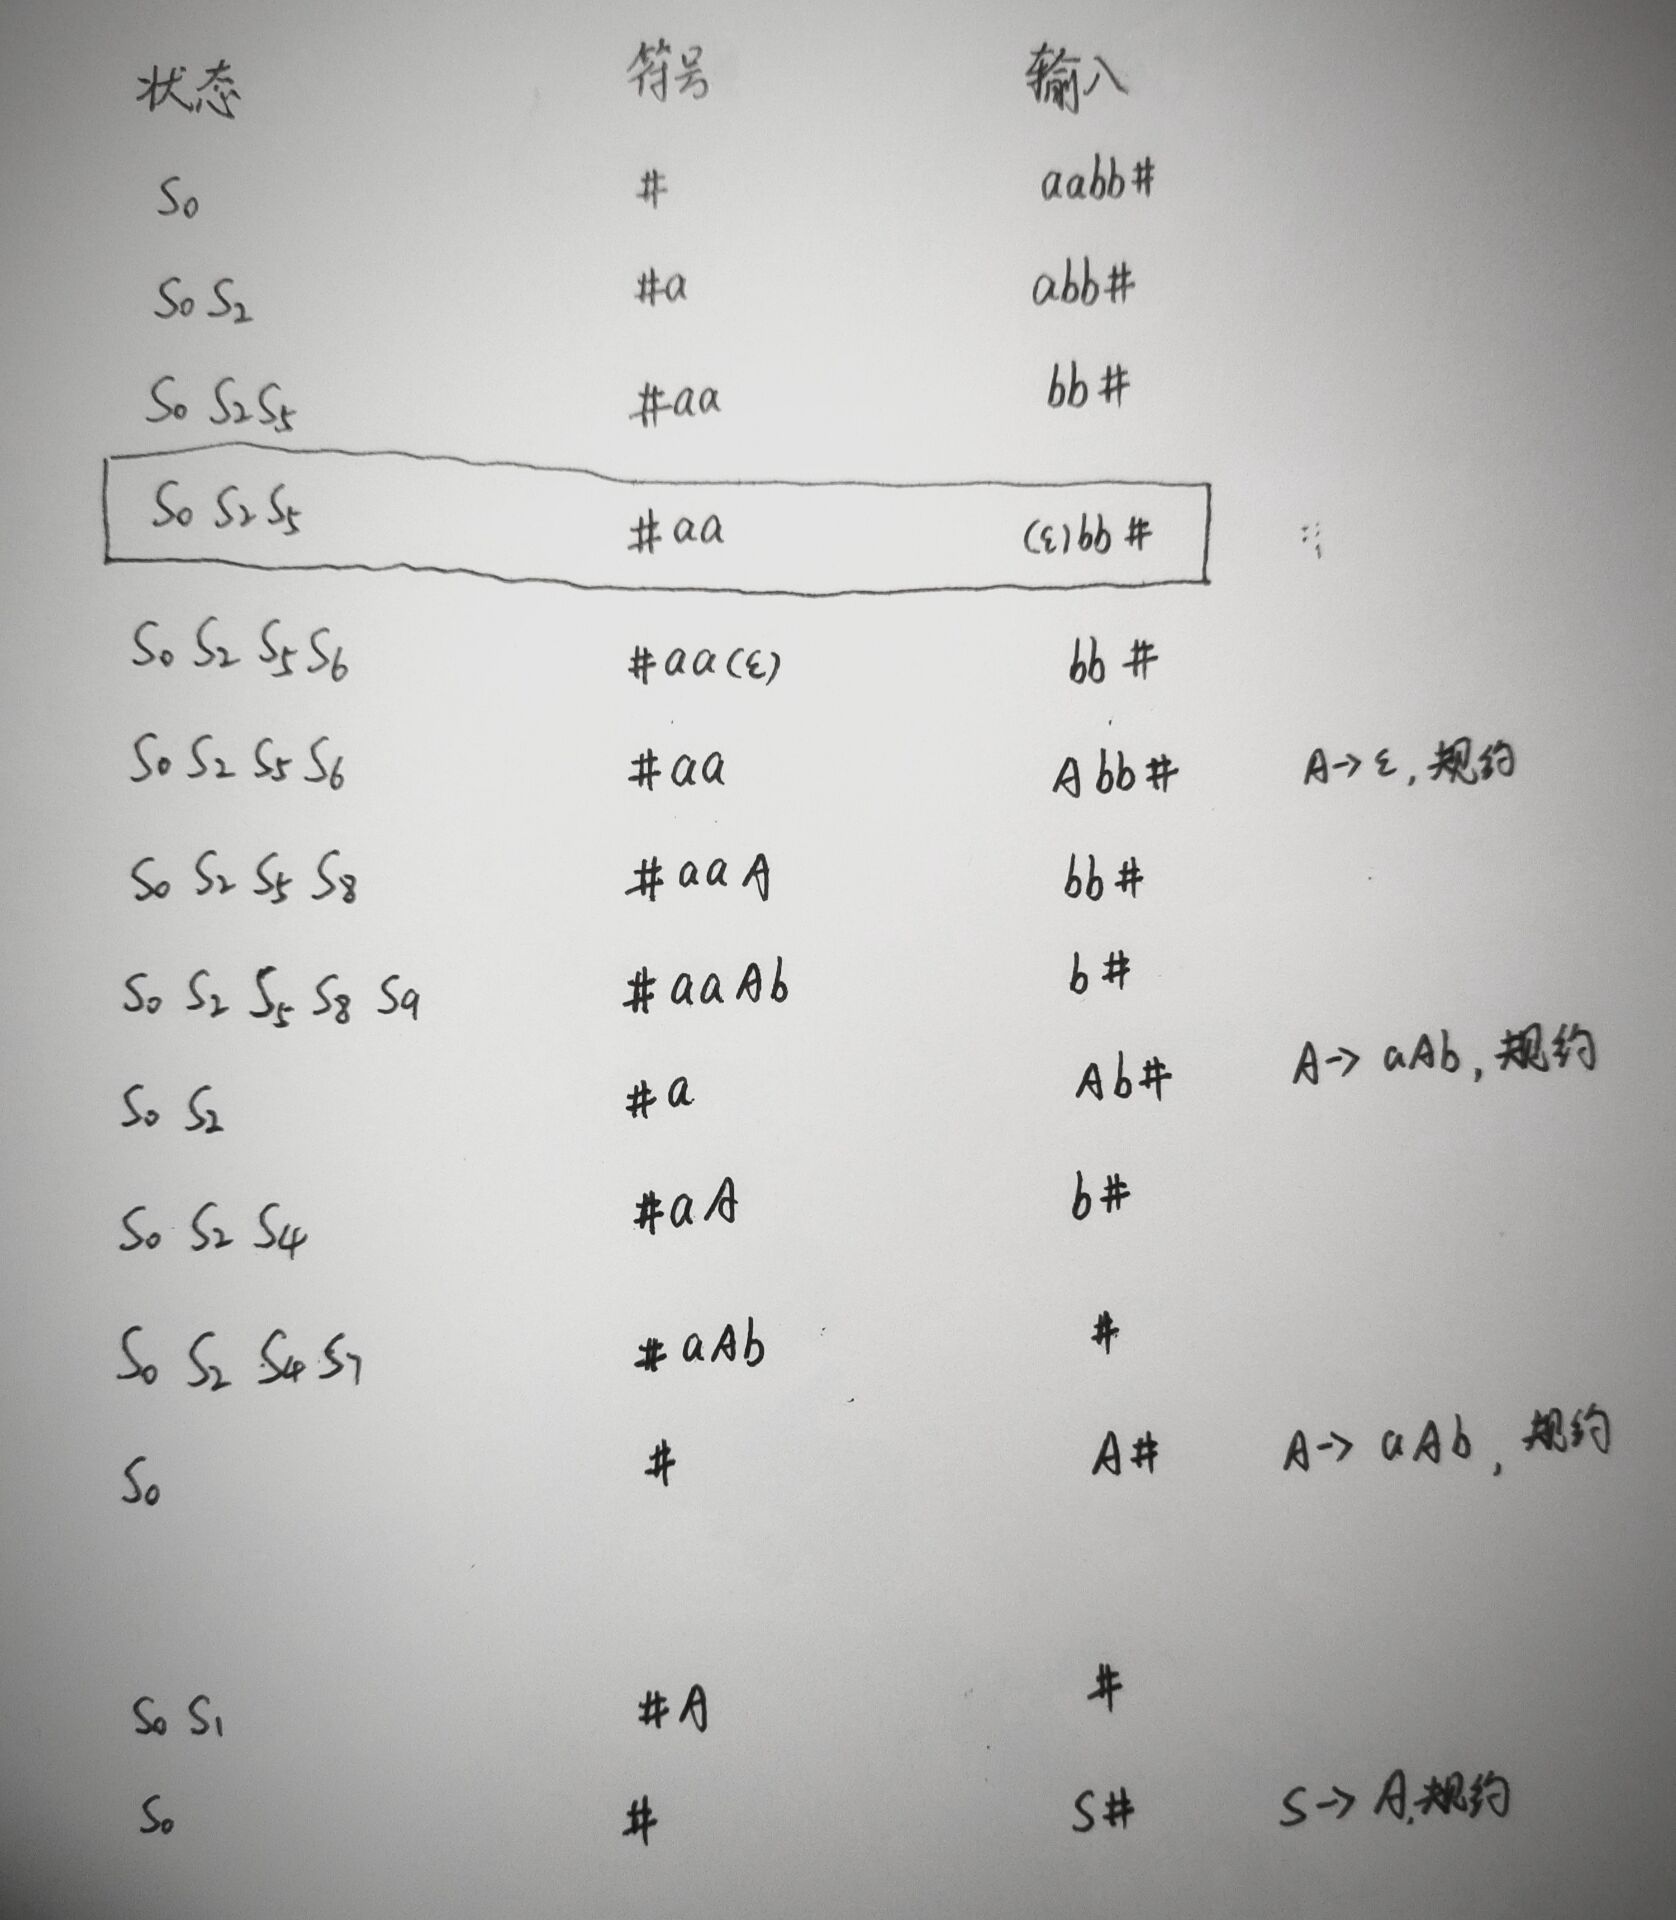 状态 符号 输入
S0 # aabb#
S0 S2 #a abb#
S0 S2 S5 #aa bb#
S0 S2 S5 #aa (ε)bb#
S0 S2 S5 S6 #aa(ε) bb#
S0 S2 S5 S6 #aa Abb# A→ε,规约
S0 S2 S5 S8 #aaA bb#
S0 S2 S5 S8 S9 #aaAb b#
S0 S2 #a Ab# A→aAb,规约
S0 S2 S4 #aA b#
S0 S2 S4 S7 #aAb #
S0 # A# A→aAb,规约
S0 S1 #A #
S0 # S# S→A,规约